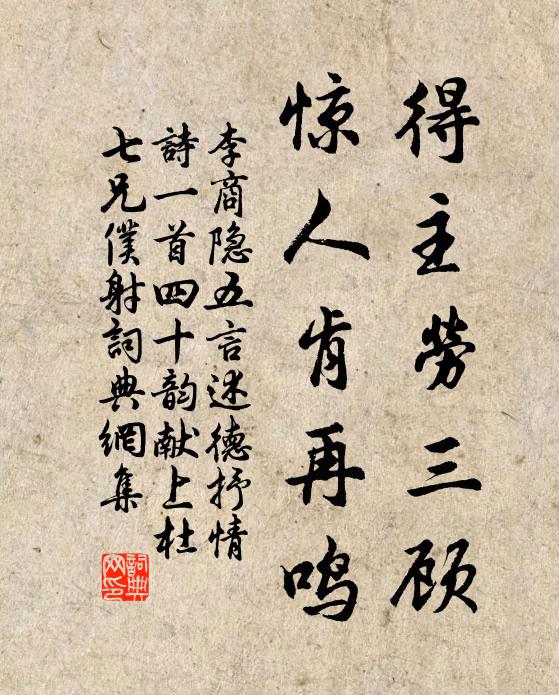 得主劳三顾
惊人肯再鸣
李商隐五言述德抒情
詩一首四十韵献上杜
七兄僕射詞典網集
詞典
网印